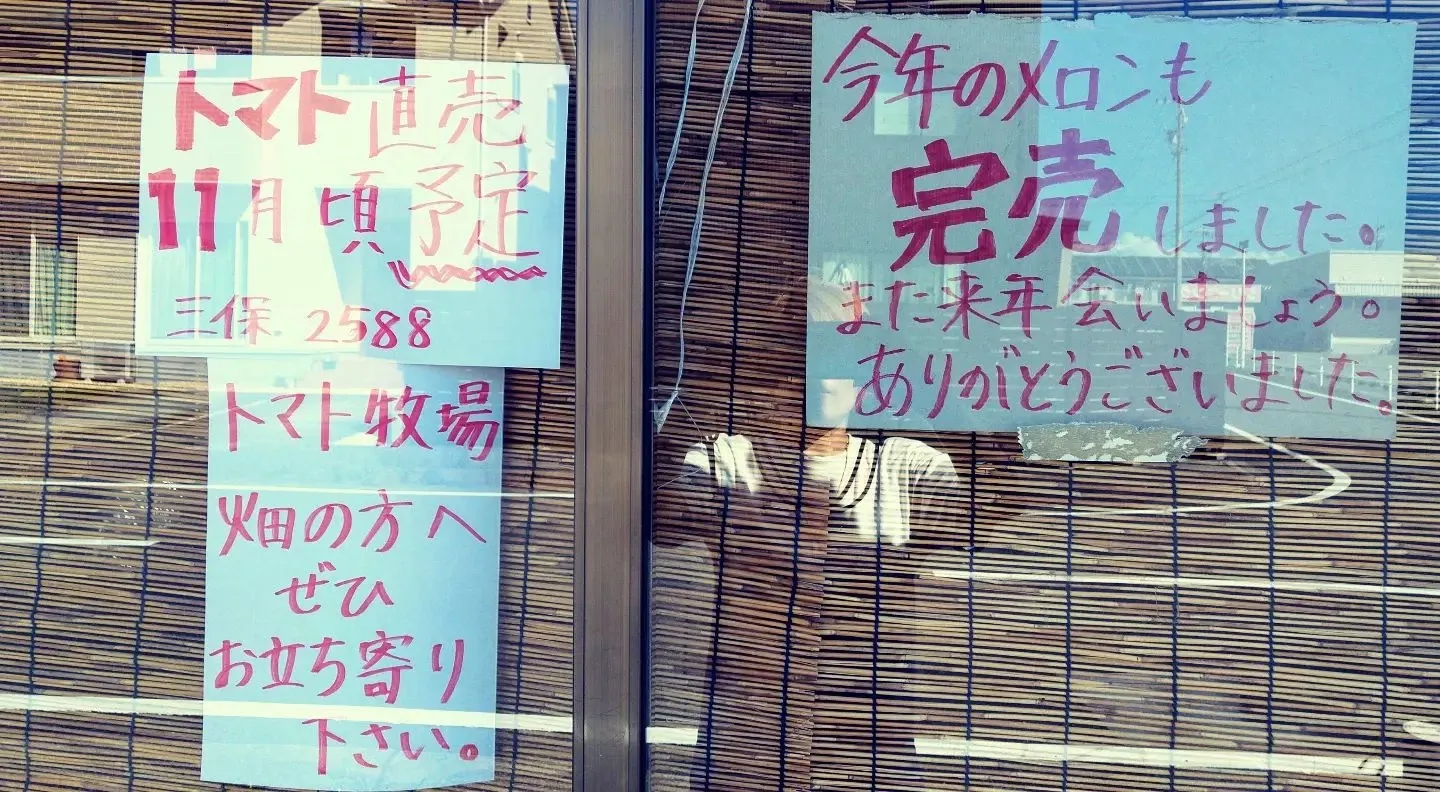 トマト直売
11月頃予定
三保 2588
トマト牧場
畑の方へ
ぜひ
お立ち寄り
下さい。
今年のメロンも
完売しました。
また来年会いましょう。
ありがとうございました。